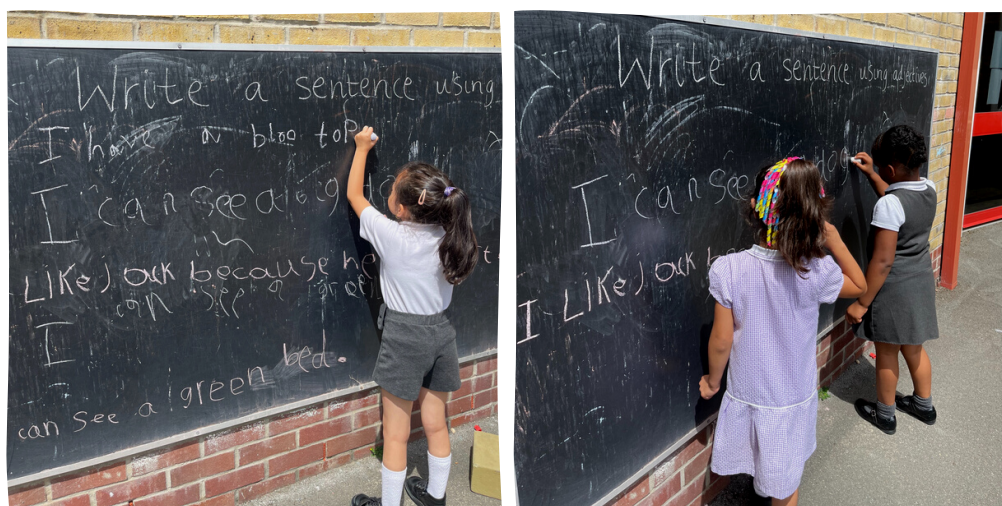 Write a sentence using
I have a bloo top
I can see a
Like jack because he
can see a green
I
can see a green bed.
Write a sentence using adjectives
I can see
I Like jack b